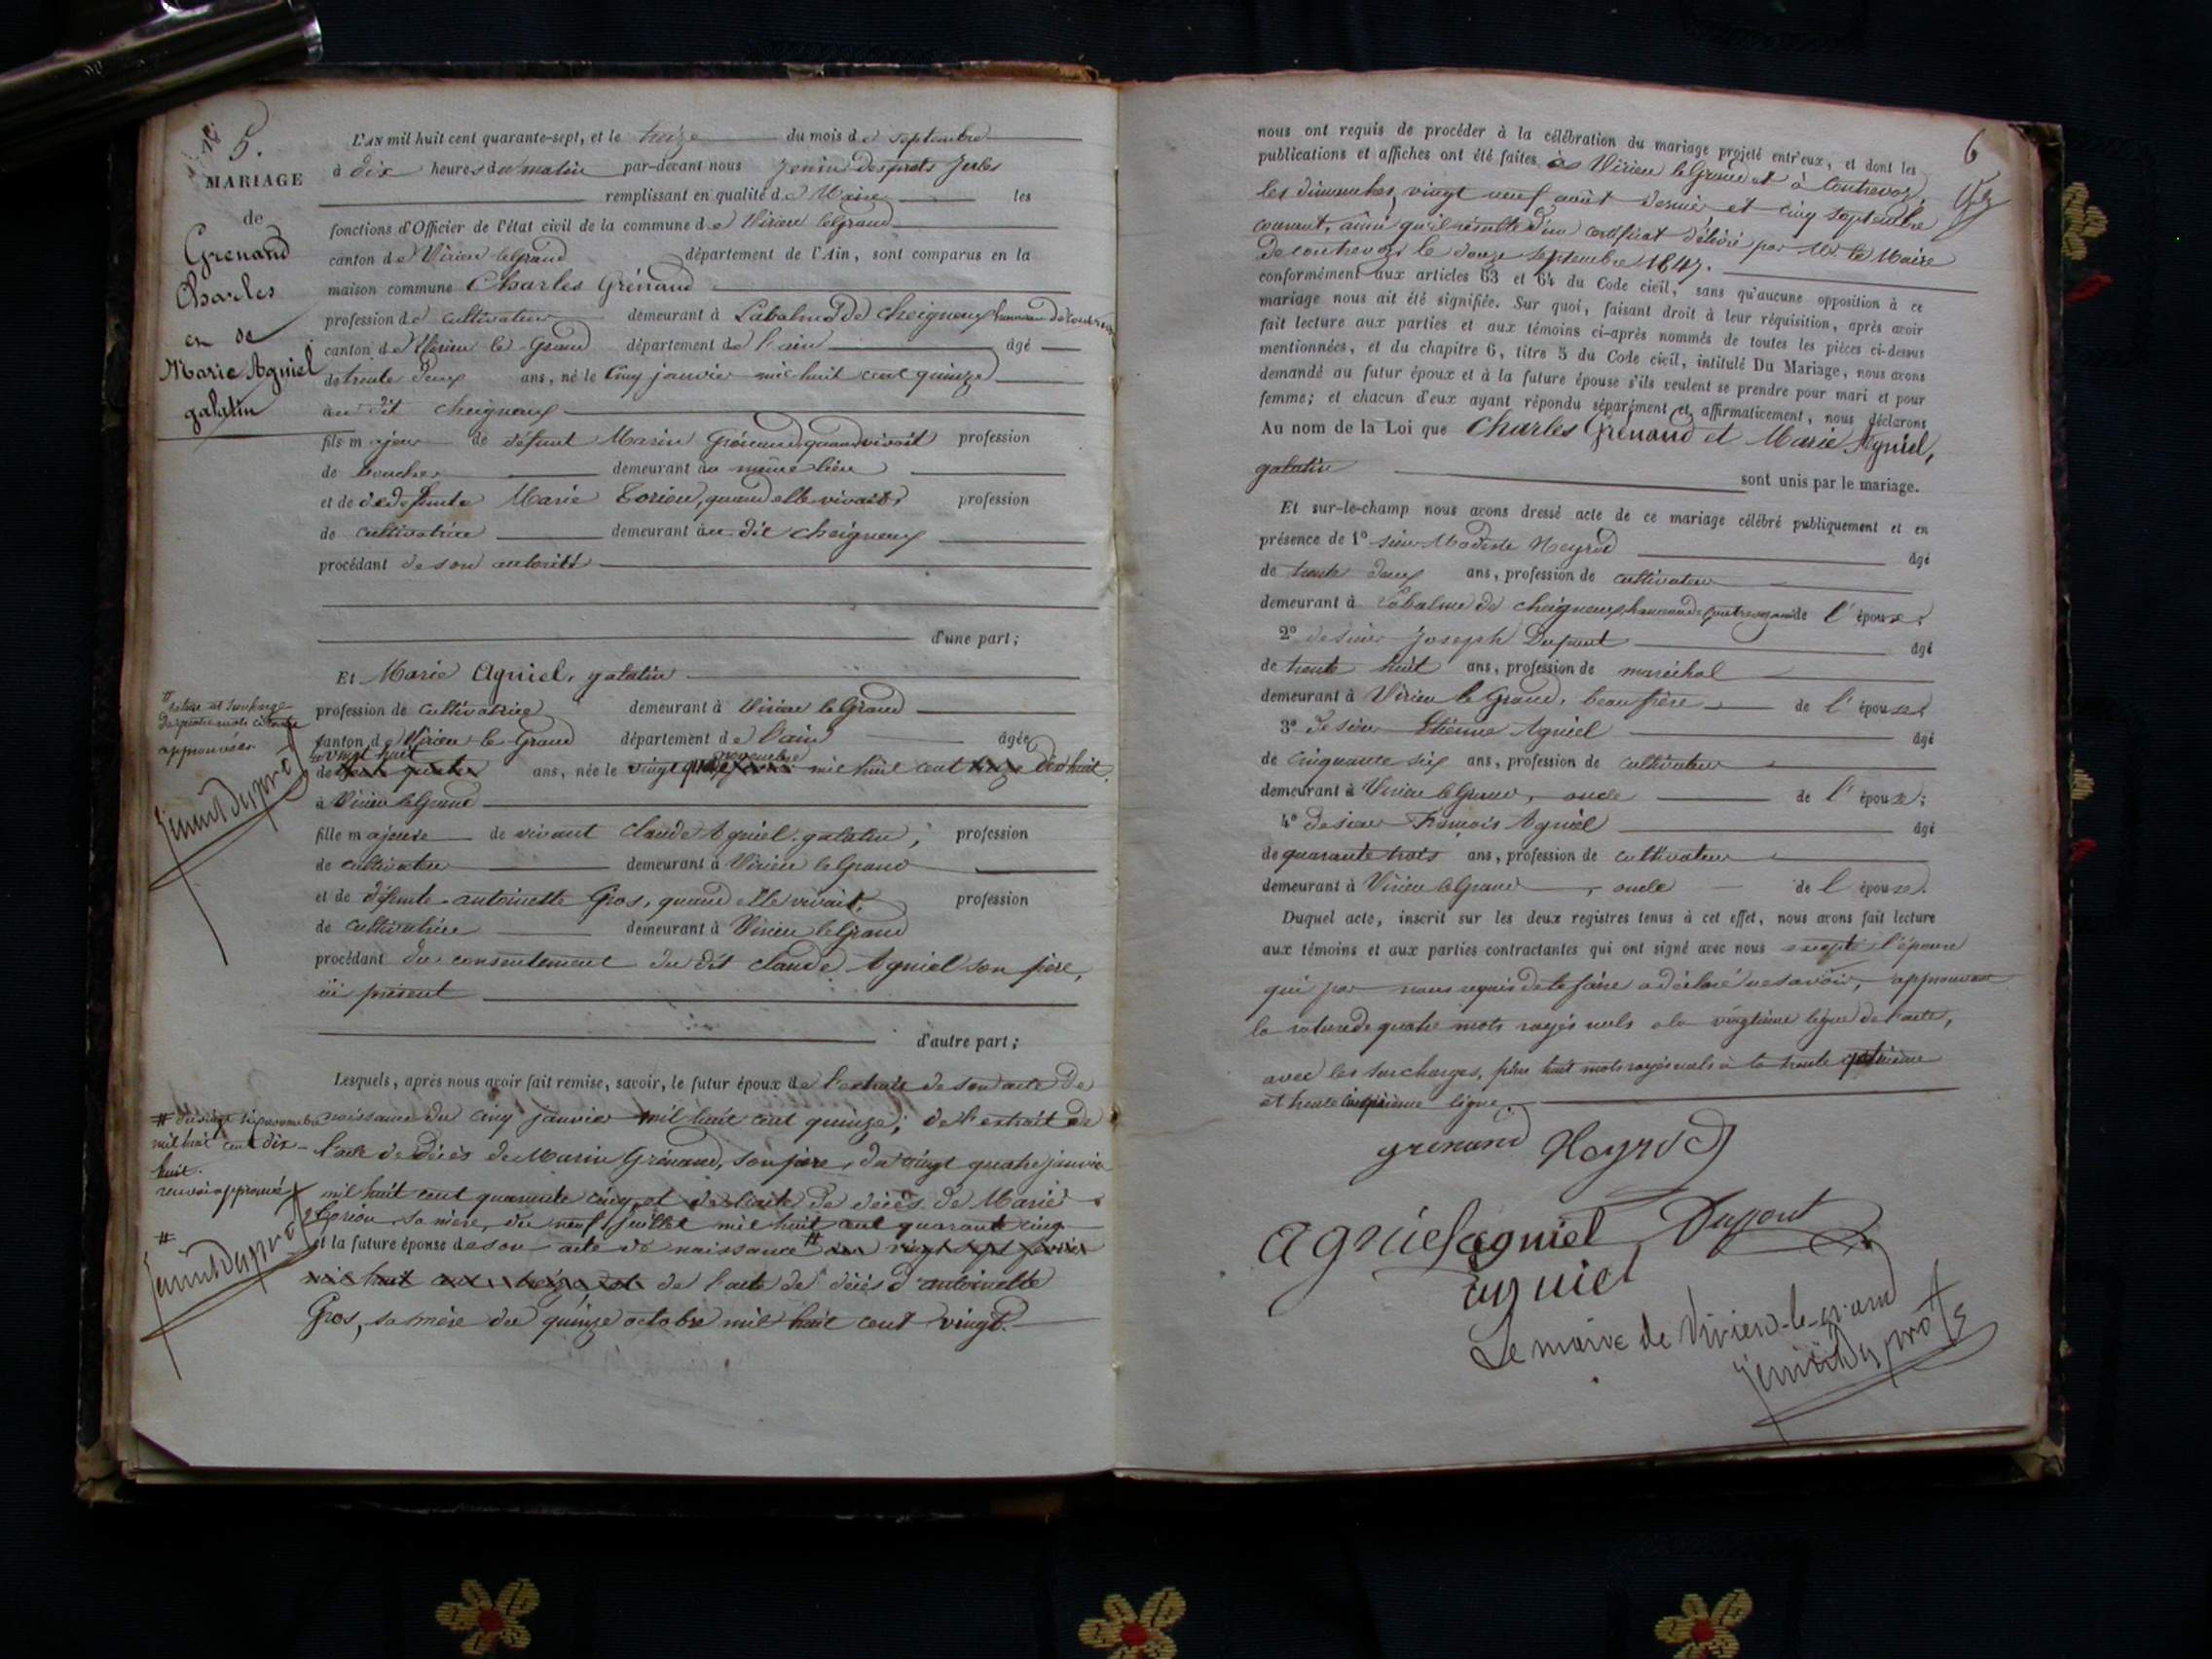 N.° 5.
MARIAGE
de
Grenand
Charles
en se
Marie Agniel
galatin
L'AN mil huit cent quarante-sept, et le treize du mois de septembre
à dix heures du matin par-devant nous Jenin Desprots Jules
remplissant en qualité de Maire les
fonctions d'Officier de l'état civil de la commune de Virieu le Grand
canton de Virieu le Grand département de l'Ain, sont comparus en la
maison commune Charles Grénand
profession de cultivateur demeurant à Labalme de Cheigneux hameau de
canton de Virieu le Grand département de l'ain âgé
de trente deux ans, né le cinq janvier mil huit cent quinze
au dit cheigneux
fils majeur de défunt Marin Grénand, quand vivait profession
de demeurant au même lieu
et de défunte Marie Corion, quand elle vivait, profession
de cultivatrice demeurant au dit cheigneux
procédant de son autorité
d'une part;
Et Marie Agniel, galatin
profession de cultivatrice demeurant à Virieu le Grand
canton de Virieu le Grand département de l'ain âgée
vingt huit novembre
de ans, née le vingt mil huit cent treize dix huit
à Virieu le Grand
fille majeure de vivant claude Agniel, galatin, profession
de cultivateur demeurant à Virieu le Grand
et de défunte antoinette Gros, quand elle vivait, profession
de cultivatrice demeurant à Virieu le Grand
procédant du consentement du dit claude Agniel son père,
ici présent
d'autre part;
Lesquels, après nous avoir fait remise, savoir, le futur époux de l'extrait de son acte de
naissance du cinq janvier mil huit cent quinze; de l'extrait de
l'acte de décès de Marin Grénand, son père, du vingt quatre janvier
mil huit cent quarante cinq, et de l'acte de décès de Marie
Corion, sa mère, du neuf juillet mil huit cent quarante cinq
et la future épouse de son acte de naissance # du vingt sept février
mil huit cent treize, et de l'acte de décès d'antoinette
Gros, sa mère du quinze octobre mil huit cent vingt.
rature et surcharge
de quatre mots
approuvées
Jenin Desprots
#
mil huit cent dix-
huit.
renvoi approuvé
#
Jenin Desprots
6
nous ont requis de procéder à la célébration du mariage projeté entr'eux, et dont les
publications et affiches ont été faites à Virieu le Grand et à Contrevoz,
les dimanches, vingt neuf août dernier et cinq septembre
courant, ainsi qu'il résulte d'un certificat délivré par Mr. le Maire
de contrevoz le douze septembre 1847.
conformément aux articles 63 et 64 du Code civil, sans qu'aucune opposition à ce
mariage nous ait été signifiée. Sur quoi, faisant droit à leur réquisition, après avoir
fait lecture aux parties et aux témoins ci-après nommés de toutes les pièces ci-dessus
mentionnées, et du chapitre 6, titre 5 du Code civil, intitulé Du Mariage, nous avons
demandé au futur époux et à la future épouse s'ils veulent se prendre pour mari et pour
femme; et chacun d'eux ayant répondu séparément et affirmativement, nous déclarons
Au nom de la Loi que Charles Grénand et Marie Agniel,
galatin sont unis par le mariage.
Et sur-le-champ nous avons dressé acte de ce mariage célébré publiquement et en
présence de 1° sieur Modeste Heyrod âgé
de trente deux ans, profession de cultivateur
demeurant à Labalme de cheigneux, hameau de contrevoz, de l'époux;
2° de sieur Joseph Dupont âgé
de trente huit ans, profession de maréchal
demeurant à Virieu le Grand, beau frère de l'épouse;
3° de sieur Etienne Agniel âgé
de cinquante six ans, profession de cultivateur
demeurant à Virieu le Grand, oncle de l'épouse;
4° de sieur François Agniel âgé
de quarante trois ans, profession de cultivateur
demeurant à Virieu le Grand, oncle de l'épouse.
Duquel acte, inscrit sur les deux registres tenus à cet effet, nous avons fait lecture
aux témoins et aux parties contractantes qui ont signé avec nous excepté l'épouse
qui par nous requis de le faire a déclaré ne savoir, approuvant
la rature de quatre mots rayés nuls à la vingtième ligne de l'acte,
avec les surcharges, plus huit mots rayés nuls à la trente quatrième
et trente cinquième ligne.
grénand Heyrod
agniel agniel Dupont
agniel
Le maire de Virieu-le-grand
Jenin Desprots